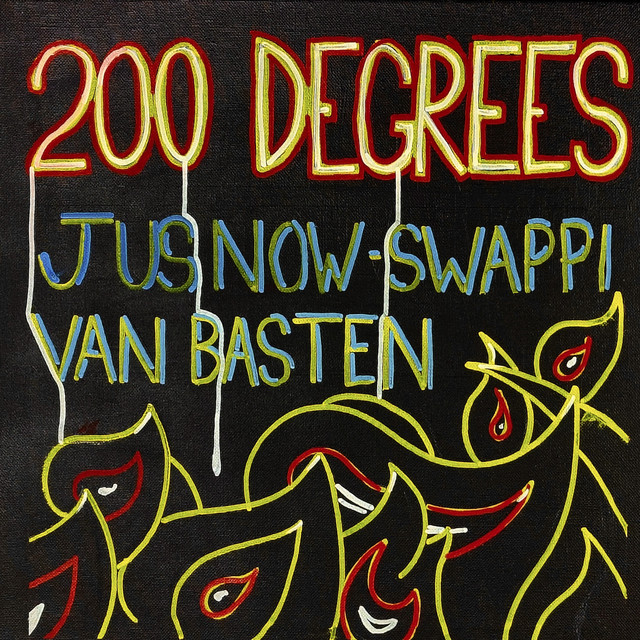 200 DEGREES
JUS NOW - SWAPPI
VAN BASTEN